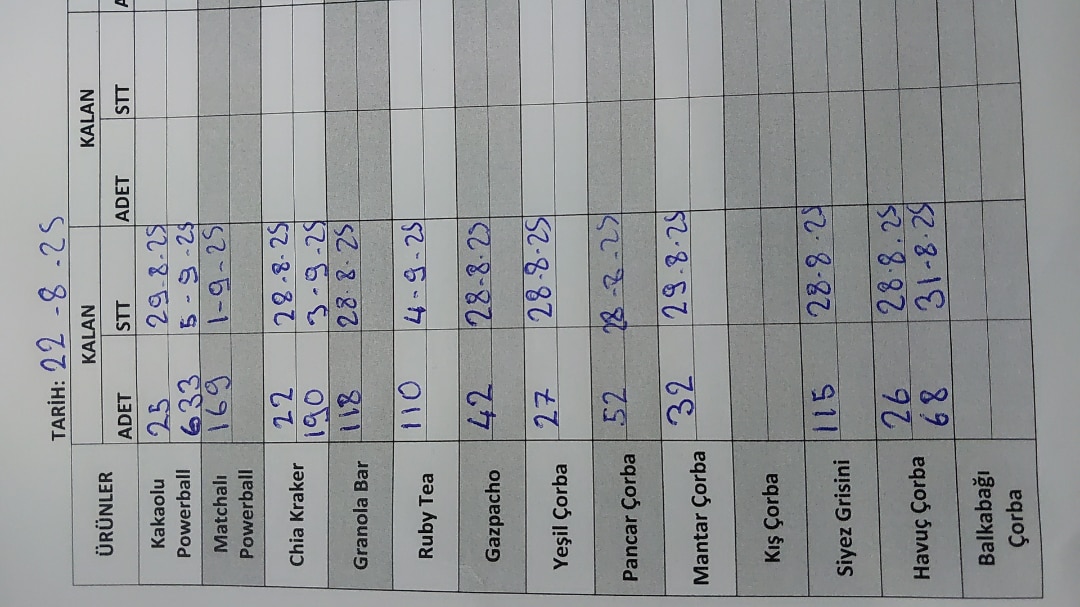 TARİH: 22-8-25
ÜRÜNLER KALAN KALAN
ADET STT ADET STT
Kakaolu Powerball 25 29.8.25
633 5-9-25
Matchalı Powerball 169 1-9-25
Chia Kraker 22 28.8.25
190 3-9-25
Granola Bar 118 28.8.25
Ruby Tea 110 4-9-25
Gazpacho 42 28.8.25
Yeşil Çorba 27 28-8-25
Pancar Çorba 52 28-8-25
Mantar Çorba 32 29.8.25
Kış Çorba
Siyez Grisini 115 28-8-25
Havuç Çorba 26 28.8.25
68 31-8-25
Balkabağı Çorba